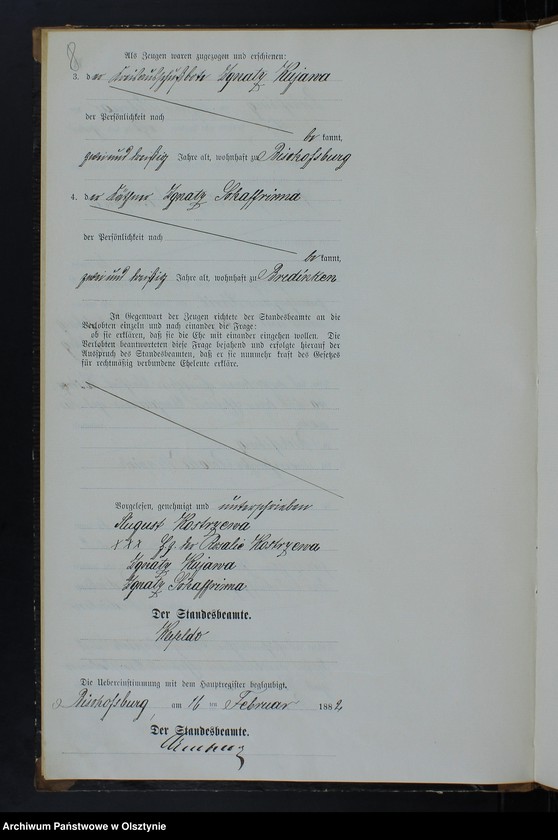 8
Als Zeugen waren zugezogen und erschienen:
3. der Kreisausschußbote Ignatz Kujawa
der Persönlichkeit nach
be kannt,
zwei und dreißig Jahre alt, wohnhaft zu Bischofsburg
4. der Käthner Ignatz Schaffrinna
der Persönlichkeit nach
be kannt,
zwei und dreißig Jahre alt, wohnhaft zu Bredinken
In Gegenwart der Zeugen richtete der Standesbeamte an die
Verlobten einzeln und nach einander die Frage:
ob sie erklären, daß sie die Ehe mit einander eingehen wollen. Die
Verlobten beantworteten diese Frage bejahend und erfolgte hierauf der
Ausspruch des Standesbeamten, daß er sie nunmehr kraft des Gesetzes
für rechtmäßig verbundene Eheleute erkläre.
Vorgelesen, genehmigt und unterschrieben
August Kostrzewa
xxx Hz. der Rosalie Kostrzewa
Ignatz Kujawa
Ignatz Schaffrinna
Der Standesbeamte.
Die Uebereinstimmung mit dem Hauptregister beglaubigt.
Bischofsburg, am 16 ten Februar 1882,
Der Standesbeamte.
Archiwum Państwowe w Olsztynie